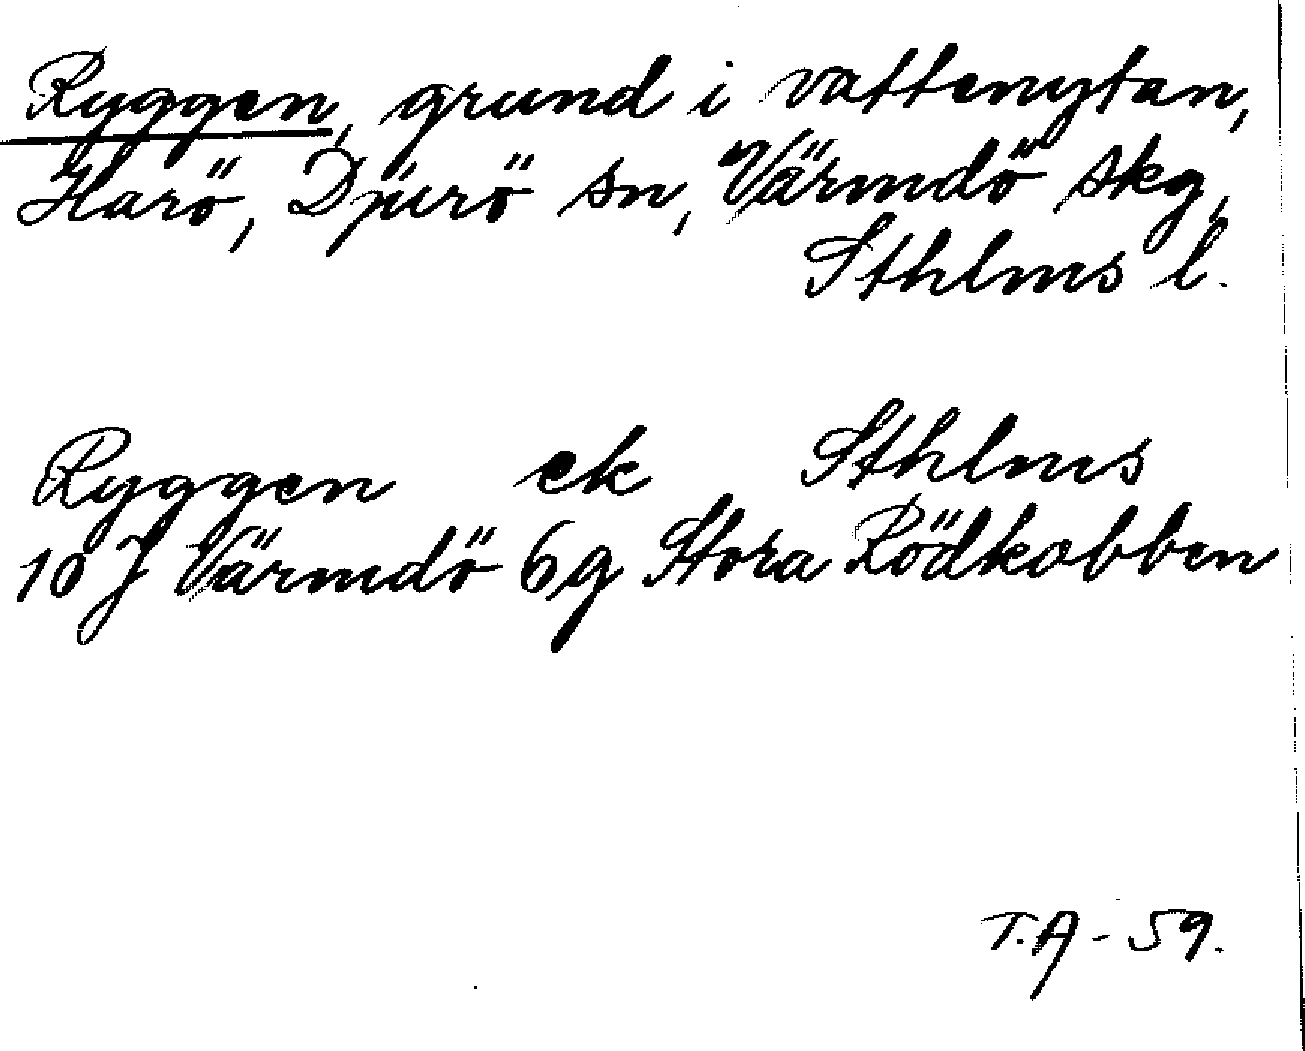 Ryggen, grund i vattenytan,
Harö, Djurö sn, Värmdö skg,
Sthlms l.
Ryggen ek Sthlms
10 J Värmdö 6g Stora Rödkobben
T.A - 59.